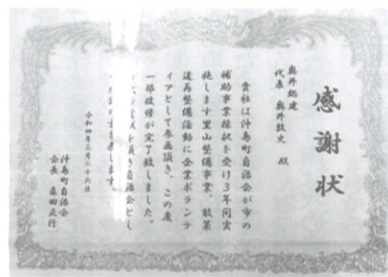 感謝状
奥井総建
代表 奥井技史 殿
貴社は汁島町自治会が市の
補助事業採択を受け3年間実
施します里山整備事業、散策
道再整備活動に企業ボランテ
ィアとして参画頂き、この度
一部改修が完了致しました。
を頂き自治会とし
令和四年三月二十六日
島町自治会
会長 森田正行